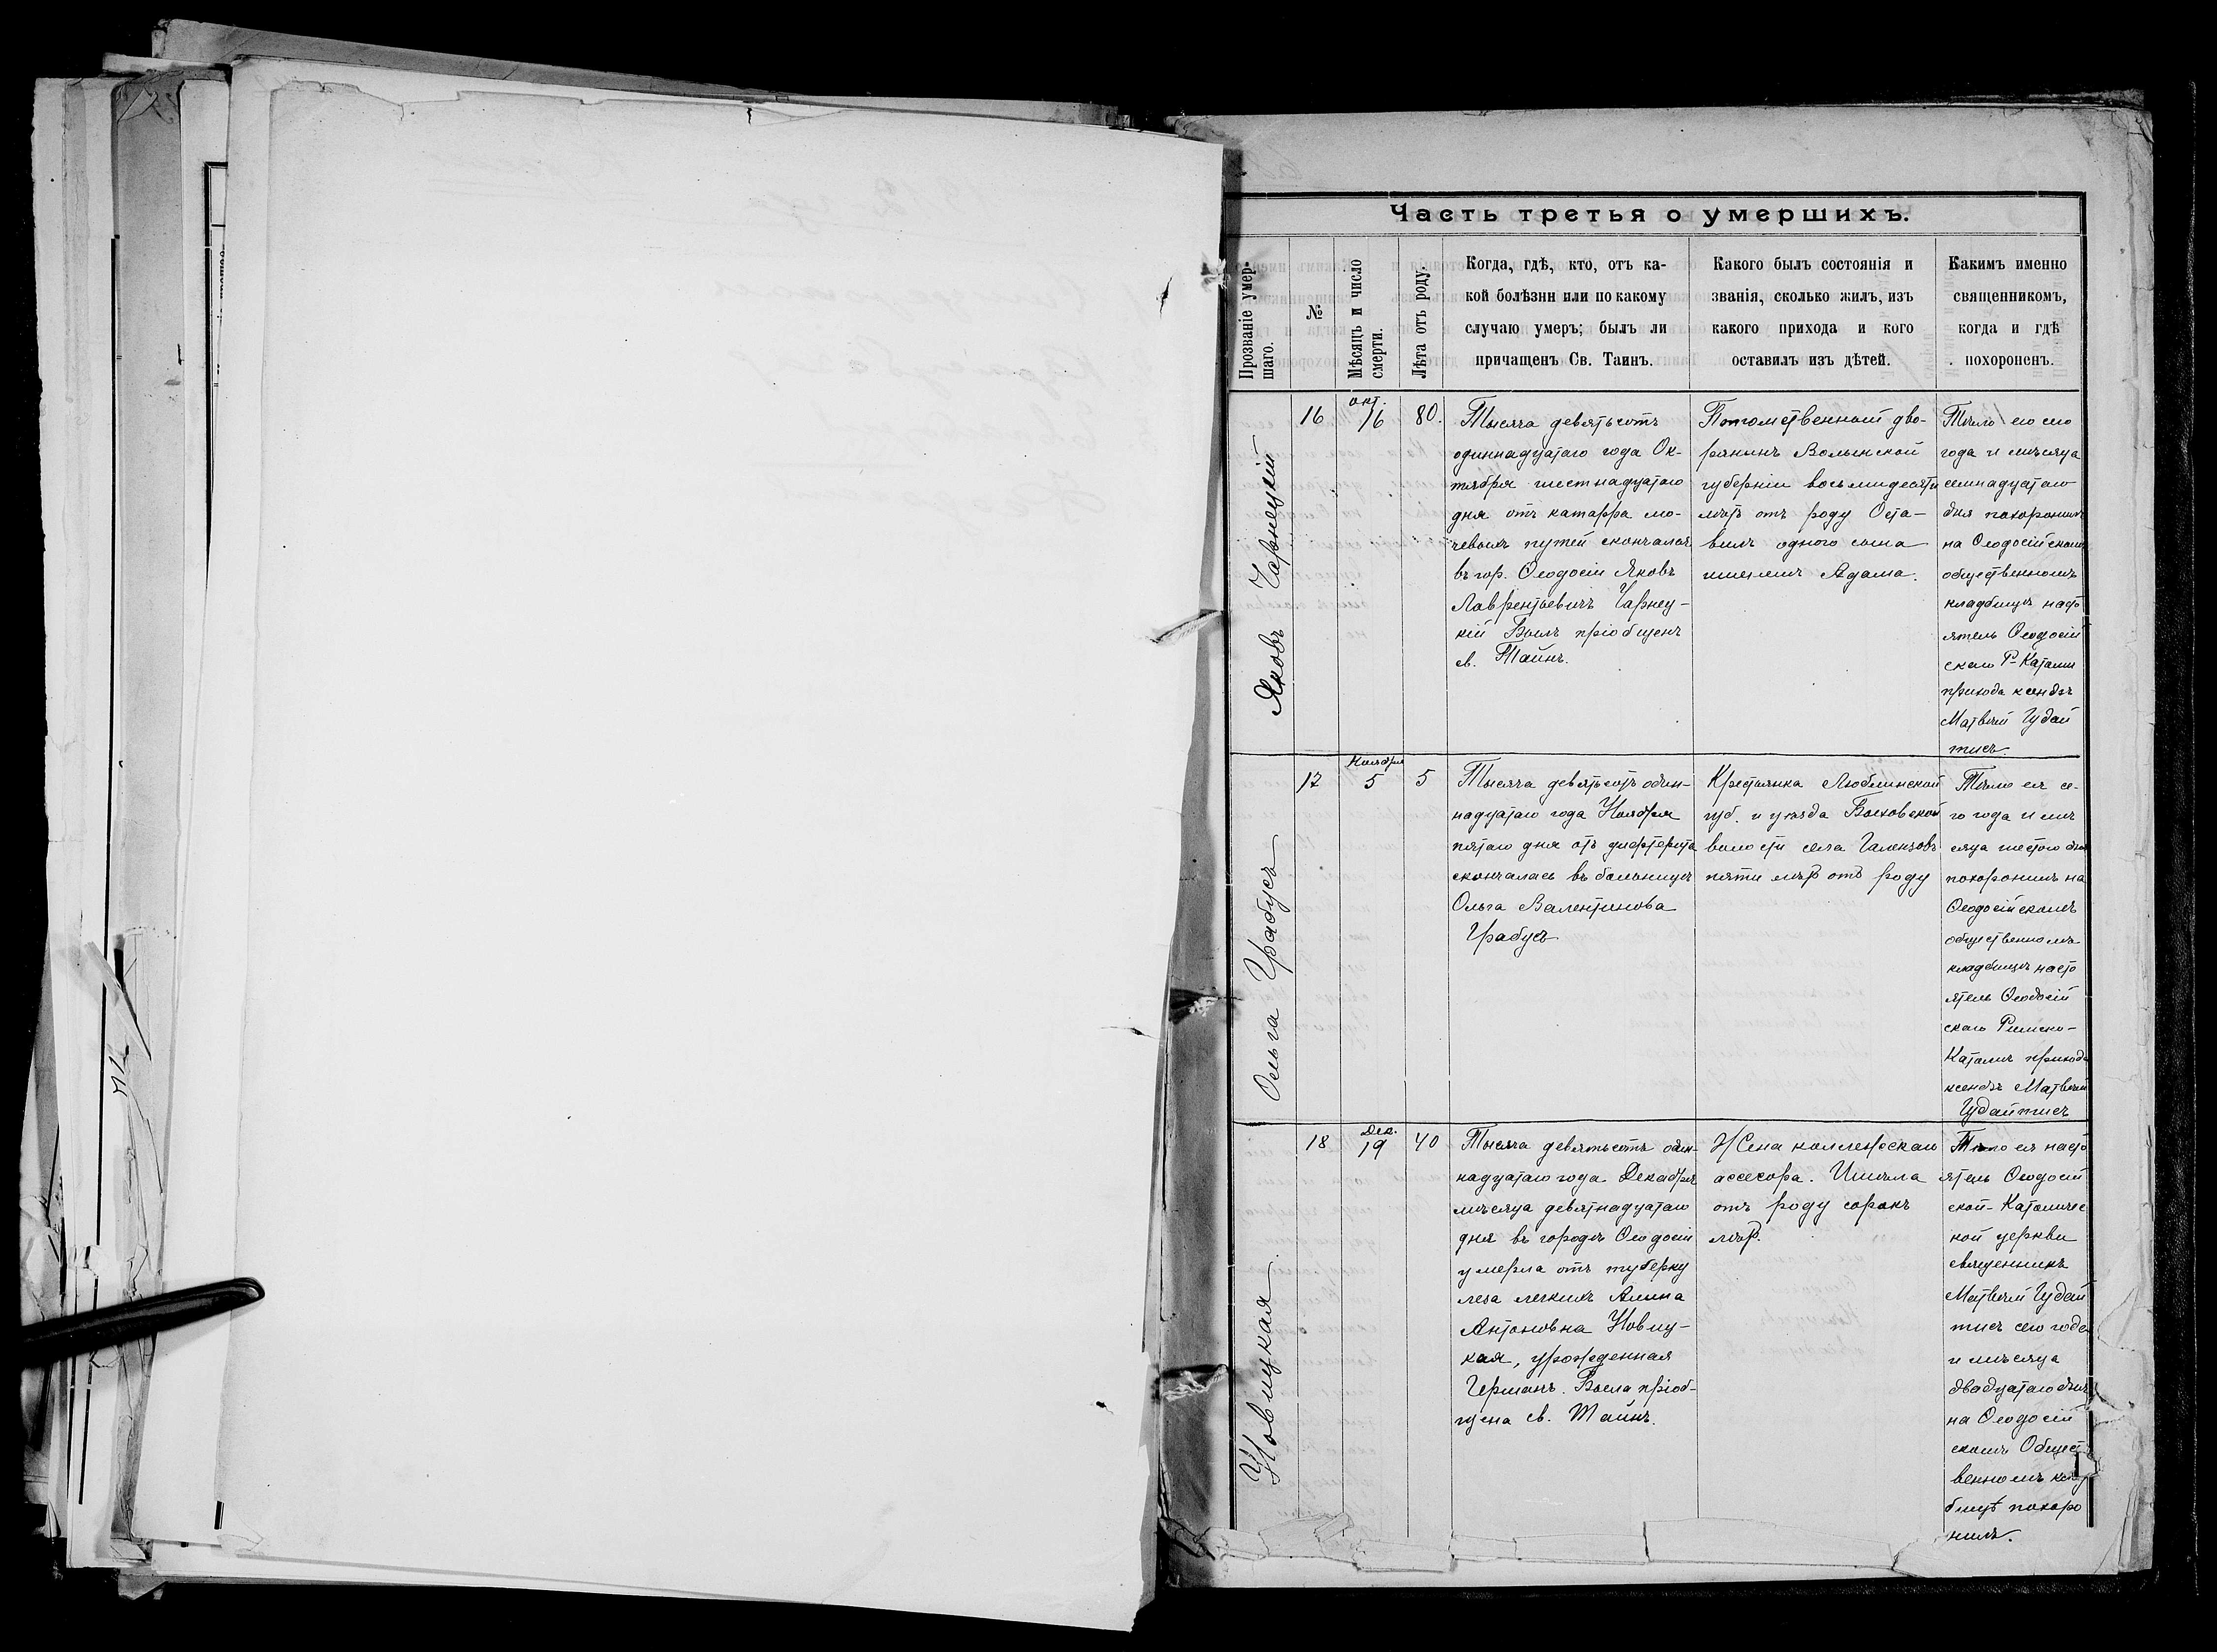 Часть третья о умершихъ.
Прозваніе умер-
шаго.
№
Мѣсяцъ и число
смерти.
Лѣта отъ роду.
Когда, гдѣ, кто, отъ ка-
кой болѣзни или по какому
случаю умеръ; былъ ли
причащенъ Св. Таинъ.
Какого былъ состоянія и
званія, сколько жилъ, изъ
какого прихода и кого
оставилъ изъ дѣтей.
Какимъ именно
священникомъ,
когда и гдѣ
похороненъ.
Яковъ Чарнецкій
16
окт.
16
80.
Тысяча девятьсотъ
одиннадцатаго года Ок-
тября шестнадцатаго
дня отъ катарра мо-
чевыхъ путей скончался
въ гор. Ѳеодосіи Яковъ
Лаврентьевичъ Чарнец-
кій Былъ пріобщенъ
св. Тайнъ.
Потомственный дво-
рянинъ Волынской
губерніи восьмидесяти
лѣтъ отъ роду Оста-
вилъ одного сына
имѣнемъ Адама.
Тѣло его сего
года и мѣсяца
семнадцатаго
дня похоронилъ
на Ѳеодосійскомъ
общественномъ
кладбищѣ насто
ятель Ѳеодосій
скаго Р-Катол
прихода ксендзъ
Матвѣй Гудай
тисъ.
Ольга Грабусъ
17
Ноября
5
5
Тысяча девятьсотъ один-
надцатаго года Ноября
пятаго дня отъ дифтерита
скончалась въ больницѣ
Ольга Валентинова
Грабусъ
Крестьянка Люблинской
губ. и уѣзда Быховской
волости села
пяти лѣтъ отъ роду
Тѣло ея се-
го года и мѣ
сяца шестого дня
похоронилъ на
Ѳеодосійскомъ
общественномъ
кладбищѣ насто
ятель Ѳеодосій
скаго Римско-
Католич прихода
ксендзъ Матвѣй
Гудайтисъ
Новицкая
18
Дек.
19
40
Тысяча девятьсотъ один-
надцатаго года Декабря
мѣсяца девятнадцатаго
дня въ городѣ Ѳеодосіи
умерла отъ туберку
леза легкихъ Алина
Антоновна Новиц-
кая, урожденная
Германъ. Была пріоб-
щена св. Тайнъ.
Жена коллежскаго
ассесора. Имѣла
отъ роду сорокъ
лѣтъ.
Тѣло ея насто
ятель Ѳеодосій
ской-Католичес
кой церкви
священникъ
Матвѣй Гудай
тисъ сего года
и мѣсяца
двадцатаго дня
на Ѳеодосій
скомъ Общест
венномъ клад
бищѣ похоро
нилъ.